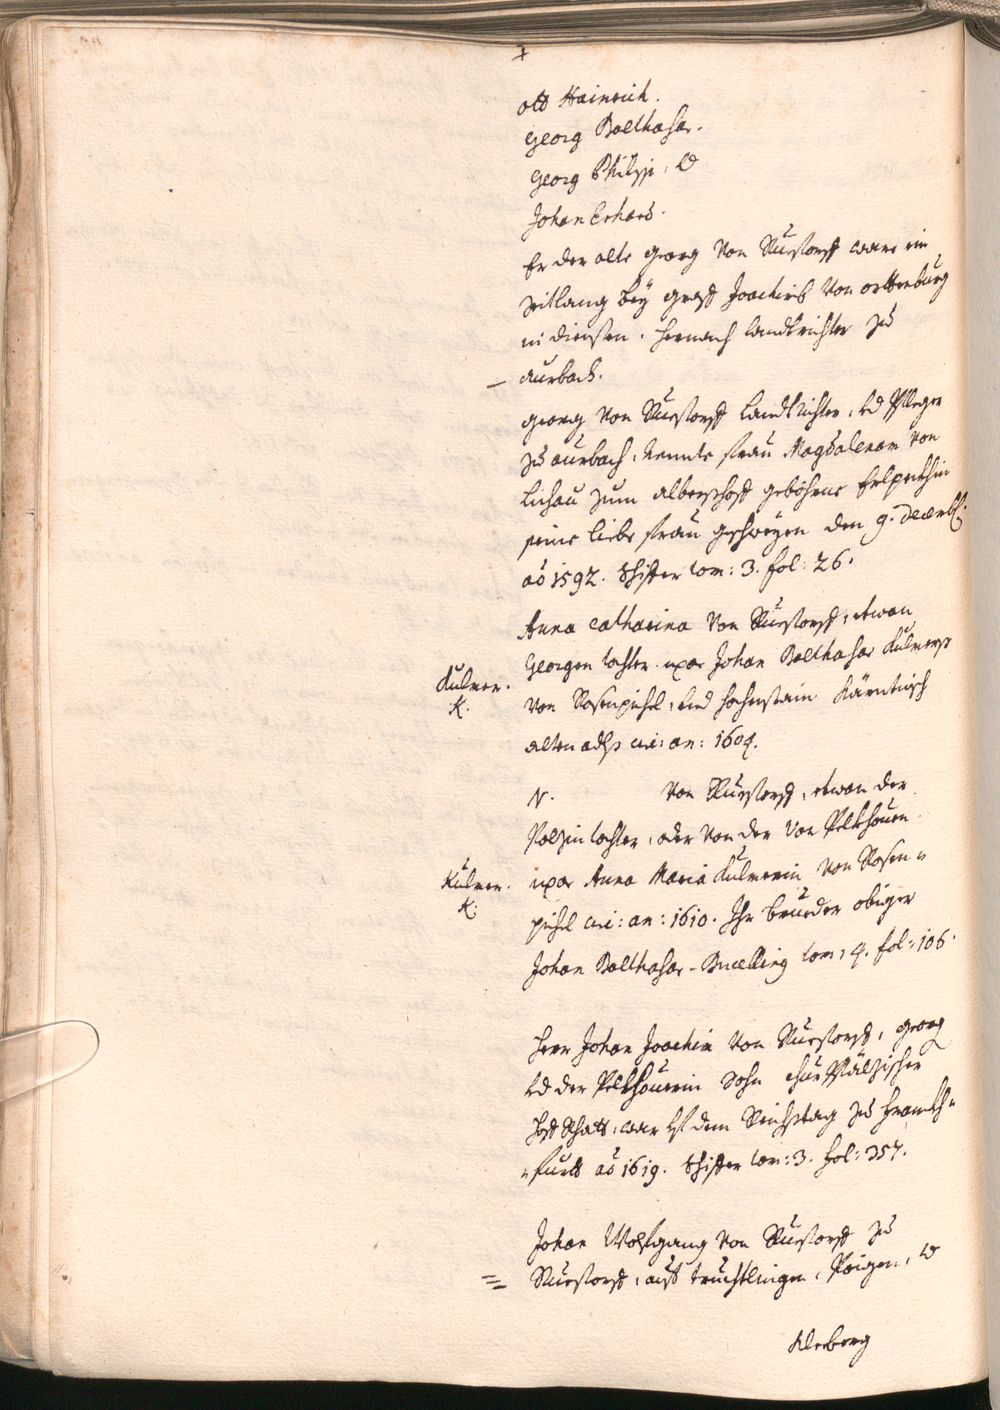 +
Ott Hainrich.
Georg Balthasar.
Georg Philipp, und
Johan Erhard.
Er der alte Georg von Ruestorff ware ein
zeitlang bey Graff Joachimb von Orttenburg
in diensten. hernach Landtrichter zu
Aurbach.
Georg von Ruestorff Landtrichter, und Pfleger
zu Aurbach, nennte Frau Magdalenam von
Lichau zum Alberschoff gebohrne Erlpeckhin
seine liebe Frau geschweyen den 9. Decembr:
aõ 1592. Schiffer tom: 3. fol: 26.
Anna Catharina von Ruestorff, etwan
Georgen tochter. uxor Johan Balthasar Kulmers
Kulmer.
K.
von Rosenpichl, und Hochenstain Kärntisch
alten adls cui: an: 1604.
N. von Ruestorff, etwan der
tochter, oder von der von Pelkhouen
Kulmer.
K:
uxor Anna Maria Kulmerin von Rosen=
pichl cui: an: 1610. Ihr brueder obiger
Johan Balthasar - Bucelling tom: 4. fol: 106.
Herr Johan Joachim von Ruestorff, Georg
und der Pelkhouerin Sohn ChurPfälzischer
Hoff Rhatt, war uf dem Reichstag zu Franckh=
=furtt aõ 1619. Schiffer tom: 3. fol: 357.
Johan Wolfgang von Ruestorff zu
Ruestorff, auf Truchtlingen, Poigen, und
Kleeberg